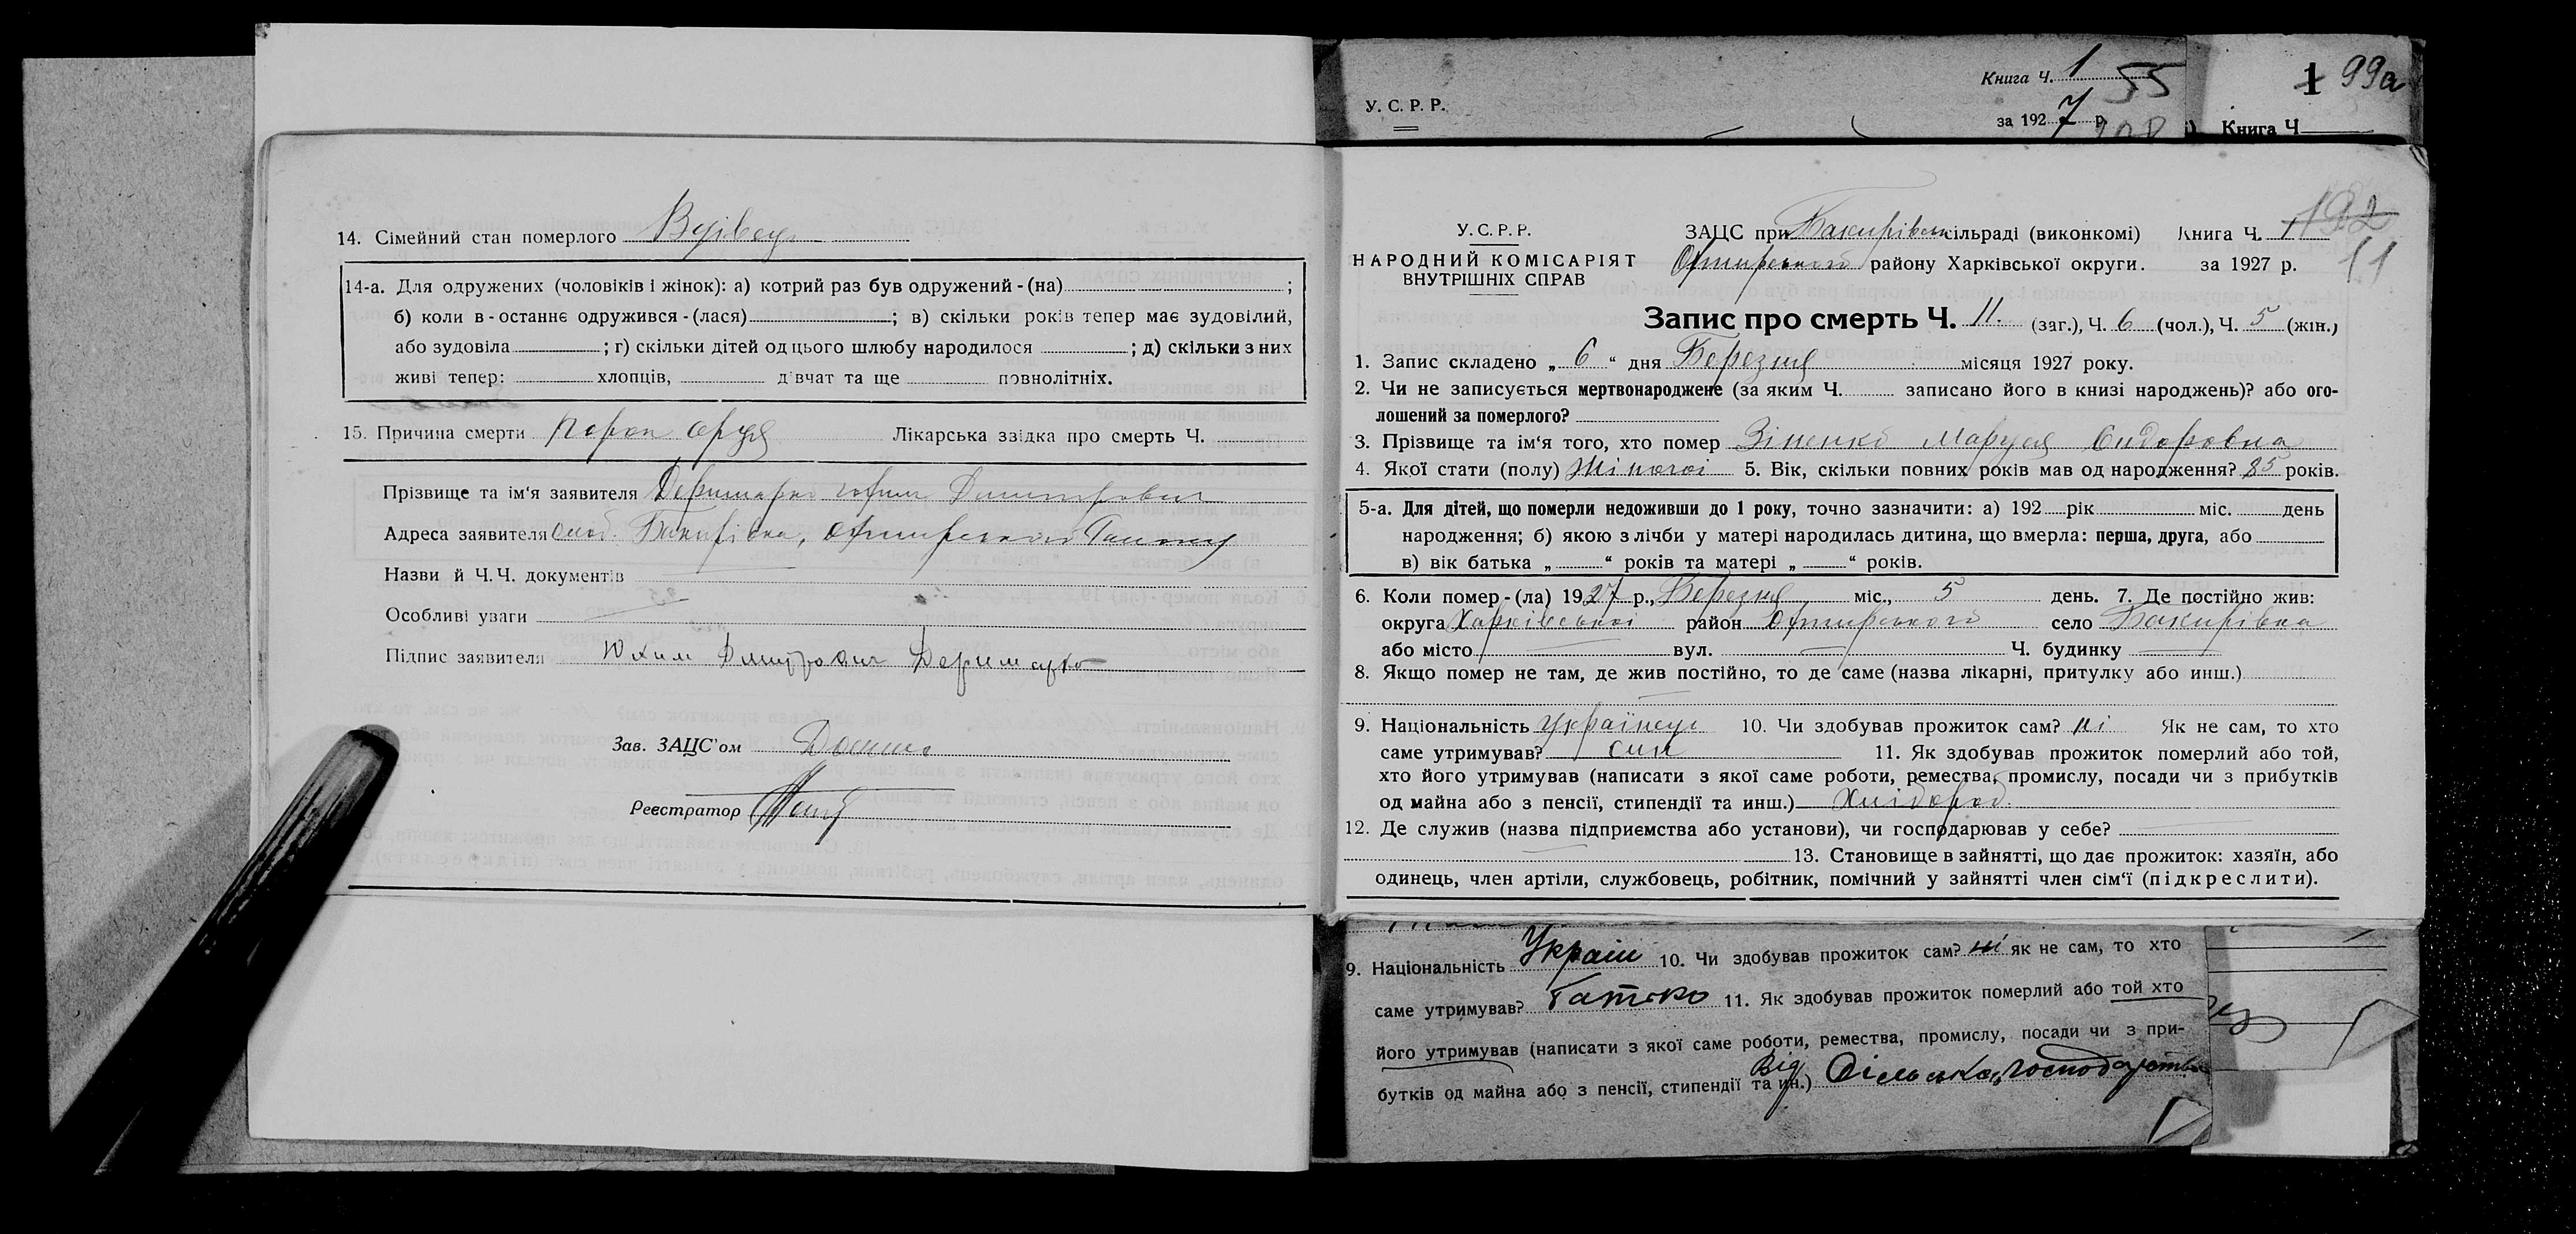 14. Сімейний стан померлого Вдівець
14-а. Для одружених (чоловіків і жінок): а) котрий раз був одружений-(на) ;
б) коли в-останнє одружився-(лася) ; в) скільки років тепер має зудовілий,
або зудовіла ; г) скільки дітей од цього шлюбу народилося ; д) скільки з них
живі тепер: хлопців, дівчат та ще повнолітніх.
15. Причина смерти Лікарська звідка про смерть Ч.
Прізвище та ім'я заявителя
Адреса заявителя слоб. Бакирівка,
Назви й Ч.Ч. документів
Особливі уваги
Підпис заявителя Юхим
Зав. ЗАЦС'ом
Реєстратор
Книга Ч. 1 55
У. С. Р. Р.
за 1927 р.
1 99а
Книга Ч
192
У. С. Р. Р. ЗАЦС при сільраді (виконкомі) Книга Ч. 1
11
НАРОДНИЙ КОМІСАРІЯТ району Харківської округи. за 1927 р.
ВНУТРІШНІХ СПРАВ
Запис про смерть Ч. 11. (заг.), Ч. 6 (чол.), Ч. 5 (жін.)
1. Запис складено „ 6 “ дня Березня місяця 1927 року.
2. Чи не записується мертвонароджене (за яким Ч. записано його в книзі народжень)? або ого-
лошений за померлого?
3. Прізвище та ім'я того, хто помер Зіненко Маруся Сидоровна
4. Якої стати (полу) Жіночої 5. Вік, скільки повних років мав од народження? 85 років.
5-а. Для дітей, що померли недоживши до 1 року, точно зазначити: а) 192 рік міс. день
народження; б) якою з лічби у матері народилась дитина, що вмерла: перша, друга, або
в) вік батька „ “ років та матері „ “ років.
6. Коли помер-(ла) 1927 р., Березня міс., 5 день. 7. Де постійно жив:
округа Харківської район Охтирського село Бакирівка
або місто вул. Ч. будинку
8. Якщо помер не там, де жив постійно, то де саме (назва лікарні, притулку або инш.)
9. Національність Українець 10. Чи здобував прожиток сам? ні Як не сам, то хто
саме утримував? син 11. Як здобував прожиток померлий або той,
хто його утримував (написати з якої саме роботи, ремества, промислу, посади чи з прибутків
од майна або з пенсії, стипендії та инш.) Хлібороб.
12. Де служив (назва підприємства або установи), чи господарював у себе?
13. Становище в зайнятті, що дає прожиток: хазяїн, або
одинець, член артіли, службовець, робітник, помічний у зайнятті член сім'ї (підкреслити).
9. Національність Україн 10. Чи здобував прожиток сам? ні як не сам, то хто
саме утримував? Батько 11. Як здобував прожиток померлий або той хто
його утримував (написати з якої саме роботи, ремества, промислу, посади чи з при-
бутків од майна або з пенсії, стипендії та ин.) Від Сільськ. господарства